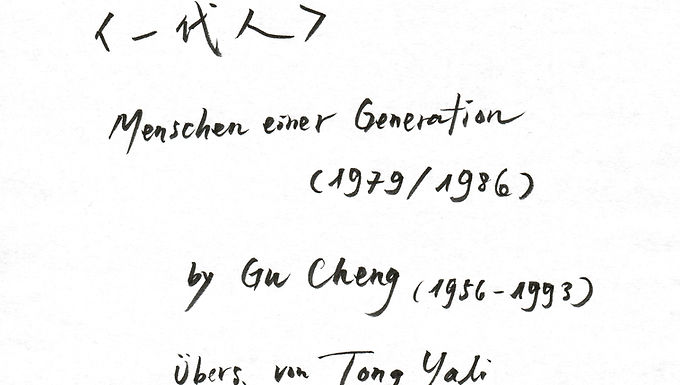 <一代人>
Menschen einer Generation
(1979/1986)
by Gu Cheng (1956-1993)
Übers. von Tong Yali